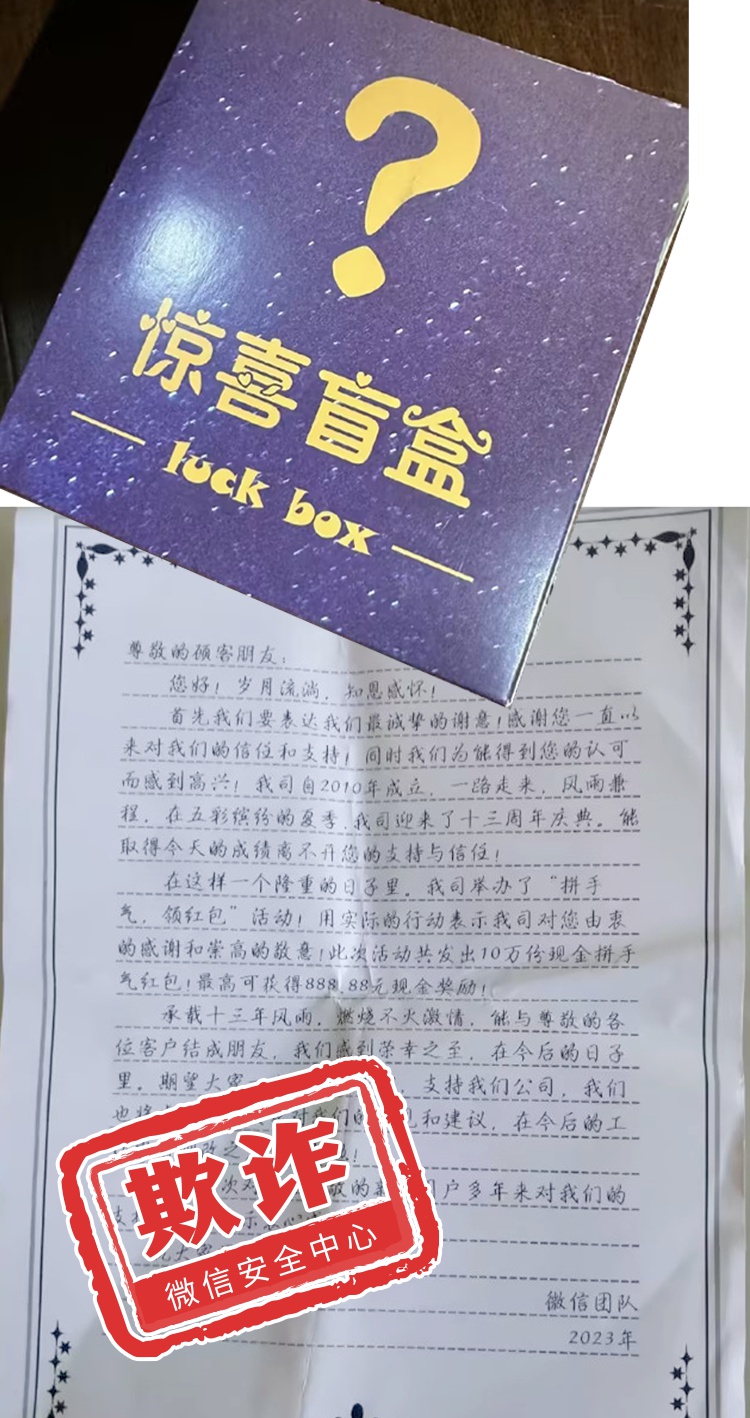 ?
惊喜盲盒
luck box
尊敬的顾客朋友：
您好！岁月流淌，知恩感怀！
首先我们要表达我们最诚挚的谢意！感谢您一直以
来对我们的信任和支持！同时我们为能得到您的认可
而感到高兴！我司自2010年成立，一路走来，风雨兼
程，在五彩缤纷的夏季，我司迎来了十三周年庆典。能
取得今天的成绩离不开您的支持与信任！
在这样一个隆重的日子里。我司举办了“拼手
气，领红包”活动！用实际的行动表示我司对您由衷
的感谢和崇高的敬意！此次活动共发出10万份现金拼手
气红包！最高可获得888.88元现金奖励！
承载十三年风雨，燃烧不火激情，能与尊敬的各
位客户结成朋友，我们感到荣幸之至，在今后的日子
里。期望大家 支持我们公司，我们
也将 对我们的 见和建议，在今后的工
改之
次对 敬的新 户多年来对我们的
支持 示衷心
大家
欺诈
微信安全中心
微信团队
2023年